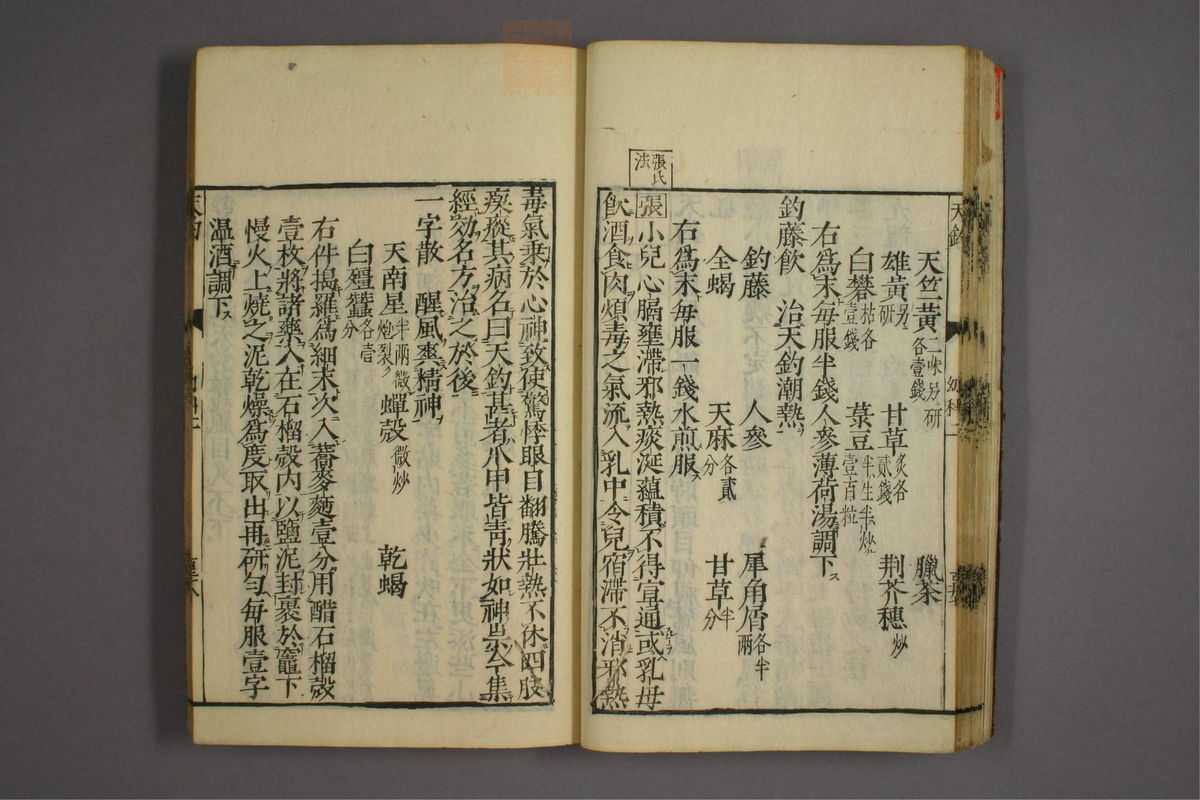 天釣
幼科二
天竺黃二味另研各壹錢 臘茶
雄黃另研 甘草炙各貳錢 荆芥穗炒
白礬枯各壹錢 菉豆半生半炒壹百粒
右爲末每服半錢人參薄荷湯調下
釣藤飲 治天釣潮熱
釣藤 人參 犀角屑各半兩
全蝎 天麻各貳分 甘草半分
右爲末每服一錢水煎服
張氏法
張小兒心膈壅滯邪熱痰涎蘊積不得宣通或乳母
飲酒食肉煩毒之氣流入乳中令兒宿滯不消邪熱
毒氣乗於心神致使驚悸眼目翻騰壯熱不休四肢
瘈瘲其病名曰天釣甚者爪甲皆靑狀如神祟今集
經効名方治之於後
一字散 醒風爽精神
天南星半兩微炮裂 蟬殼微炒 乾蝎
白殭蠶各壹分
右件搗羅爲細末次入蕎麥麵壹分用醋石榴殼
壹枚將諸藥入在石榴殼内以鹽泥封裹於竈下
慢火上燒之泥乾燥爲度取出再研勻每服壹字
温酒調下